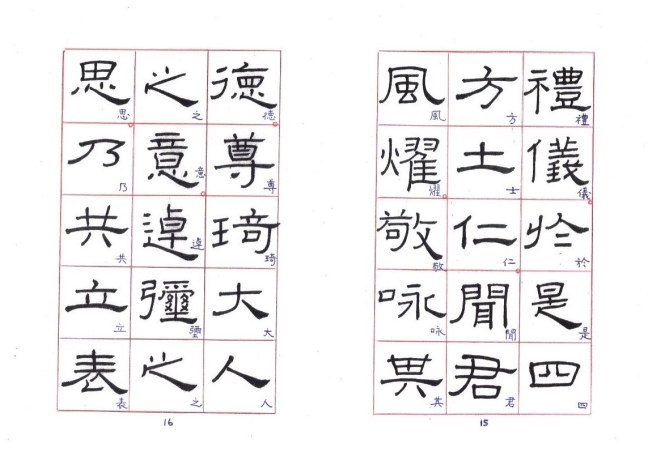 禮儀於是四
禮儀於是四
方土仁聞君
方士仁聞君
風燿敬咏其
風燿敬咏其
15
德尊琦大人
德尊琦大人
之意逴彌之
之意逴彌之
思乃共立表
思乃共立表
16